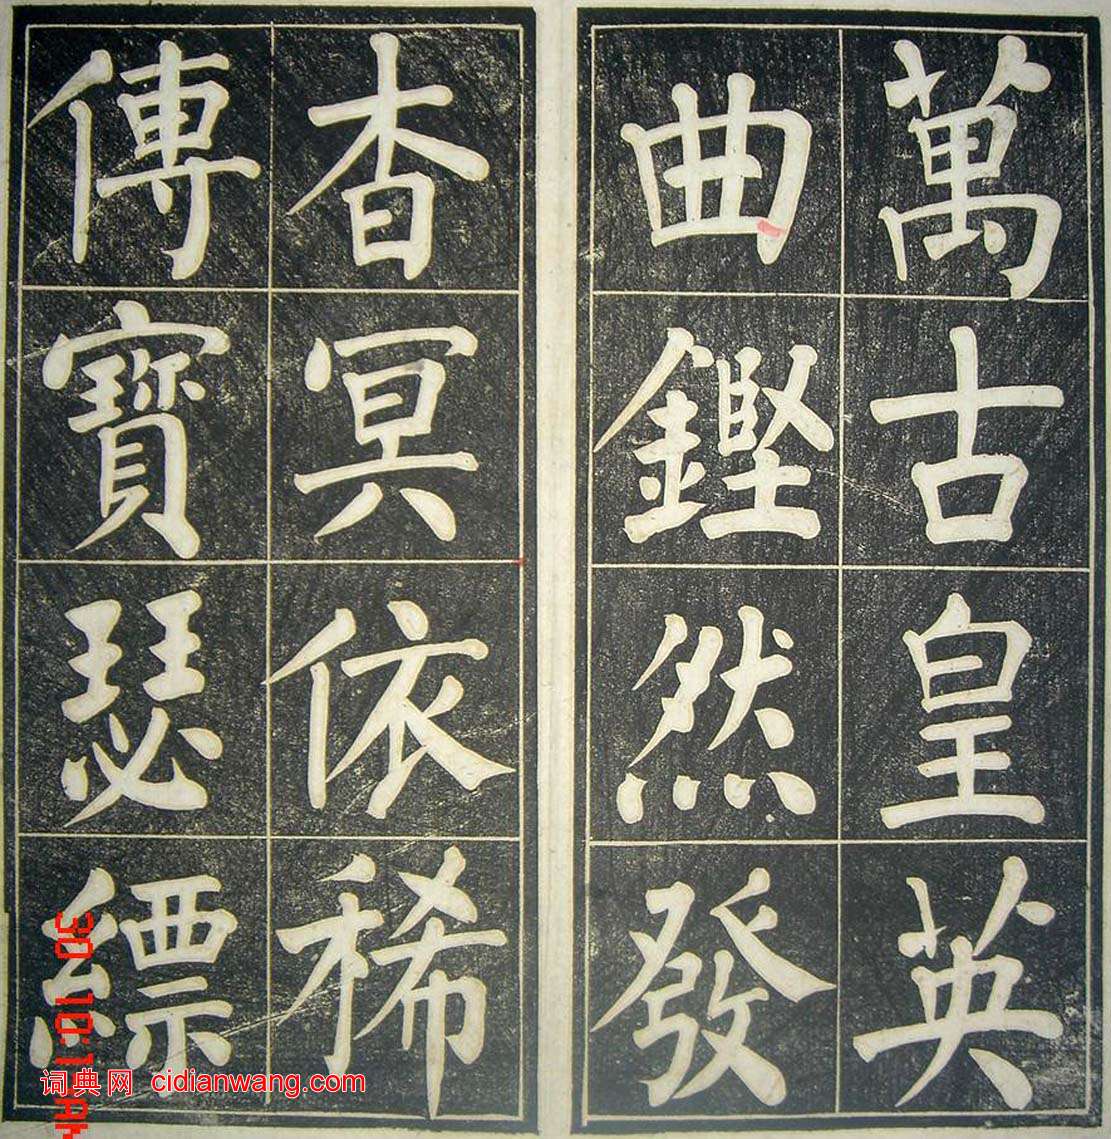 萬古皇英
曲鏗然發
杳冥依稀
傳寶瑟縹
词典网 cidianwang.com